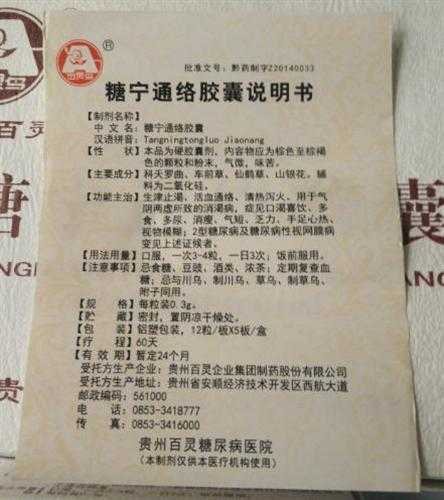 百灵鸟
®
批准文号：黔药制字Z20140033
糖宁通络胶囊说明书
【制剂名称】
中 文 名：糖宁通络胶囊
汉语拼音：Tangningtongluo Jiaonang
【性　　状】本品为硬胶囊剂，内容物应为棕色至棕褐
色的颗粒和粉末，气微，味苦。
【主要成分】科天罗曲、车前草、仙鹤草、山银花。辅
料为二氧化硅。
【功能主治】生津止渴、活血通络、清热泻火。用于气
阴两虚所致的消渴病，症见口渴喜饮、多
食、多尿、消瘦、气短、乏力、手足心热、
视物模糊；2型糖尿病及糖尿病性视网膜病
变见上述证候者。
【用法用量】口服，一次3-4粒，一日3次；饭前服用。
【注意事项】忌食糖、豆豉、酒类、浓茶；定期复查血
糖；忌与川乌、制川乌、草乌、制草乌、
附子同用。
【规　　格】每粒装0.3g。
【贮　　藏】密封，置阴凉干燥处。
【包　　装】铝塑包装，12粒/板X5板/盒
【疗　　程】60天
【有 效 期】暂定24个月
受托方生产企业：贵州百灵企业集团制药股份有限公司
受托方生产地址：贵州省安顺经济技术开发区西航大道
邮政编码：561000
电　　话：0853-3418777
传　　真：0853-3416000
贵州百灵糖尿病医院
（本制剂仅供本医疗机构使用）
糖
囊